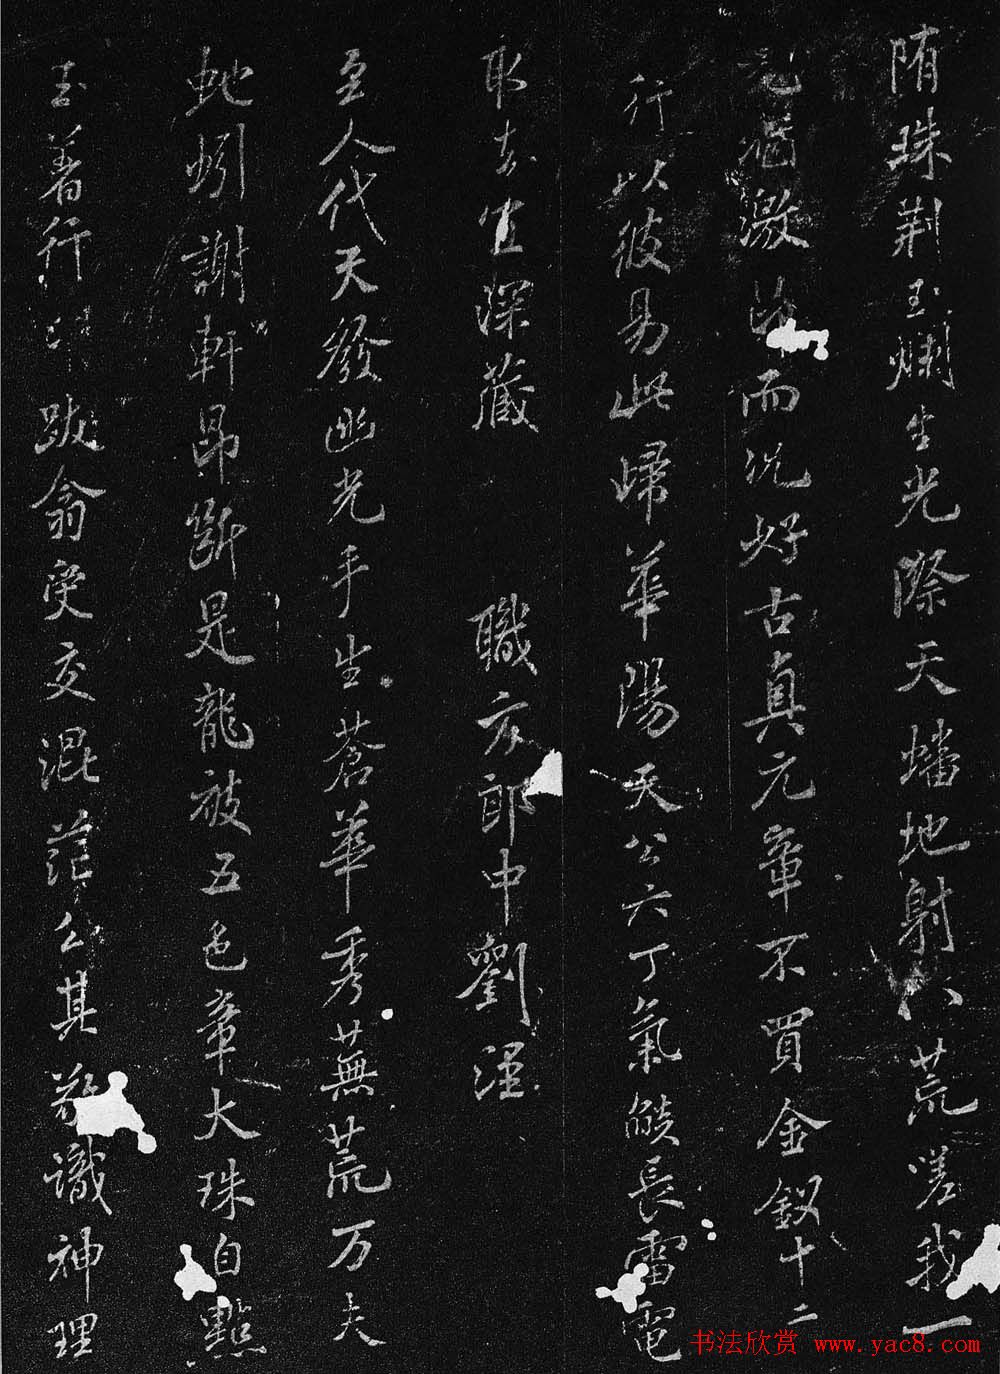 隋珠荆玉烂生光際天蟠地射八荒嗟我一
見猶激而况好古真元章不買金釵十二
行以彼易此歸華陽天公六丁氣燄長雷電
取去宜深藏 職方郎中劉涇
至人代天發幽光手生蒼華秀蕪荒万夫
虵蚓謝軒昂斷是龍被五色章大珠自點
玉著行 跋翁受交混茫公其識神理
书法欣赏 www.yac8.com